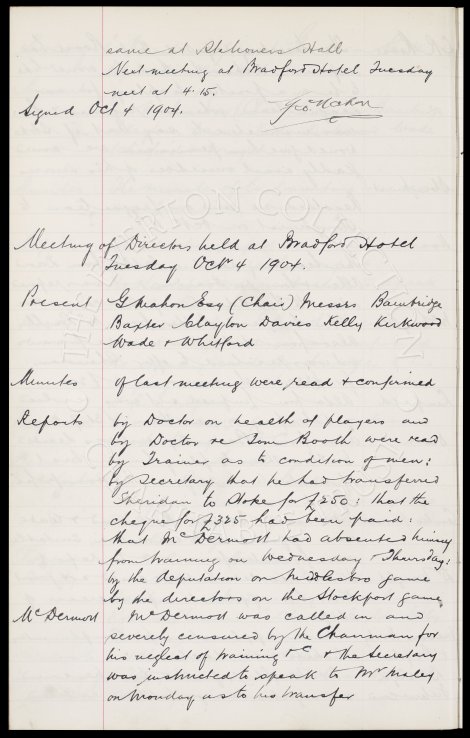 same at Stationers Hall
Next meeting at Bradford Hotel Tuesday
next at 4.15.
Signed Oct 4 1904. Geo Mahon
Meeting of Directors held at Bradford Hotel
Tuesday Octr 4 1904.
Present G Mahon Esq (Chair) Messrs Bainbridge
Baxter Clayton Davies Kelly Kirkwood
Wade & Whitford
Minutes of last meeting were read & confirmed
Reports by Doctor on health of players and
by Doctor re Tom Booth were read
by Trainer as to condition of men:
by Secretary that he had transferred
Sheridan to Stoke for £250: that the
cheque for £325 had been paid:
that McDermott had absented himself
from training on Wednesday & Thursday:
by the deputation on Middlesbro game
by the directors on the Stockport game
McDermott McDermott was called in and
severely censured by the Chairman for
his neglect of training &c & the Secretary
was instructed to speak to Mr Maley
on Monday as to his transfer